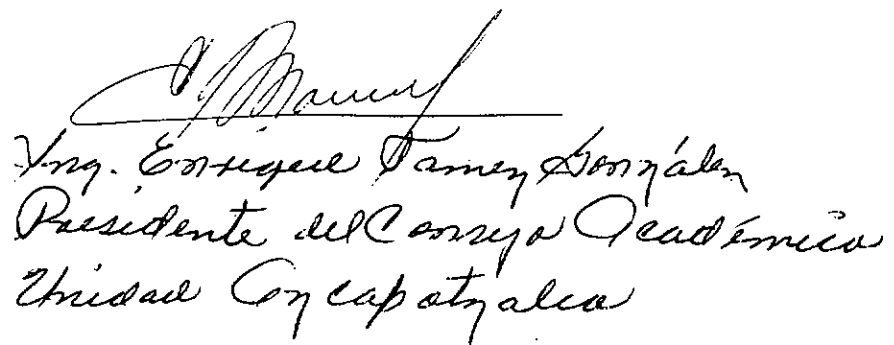 Ing. Enrique Tamez González
Presidente del Consejo Académico
Unidad Azcapotzalco